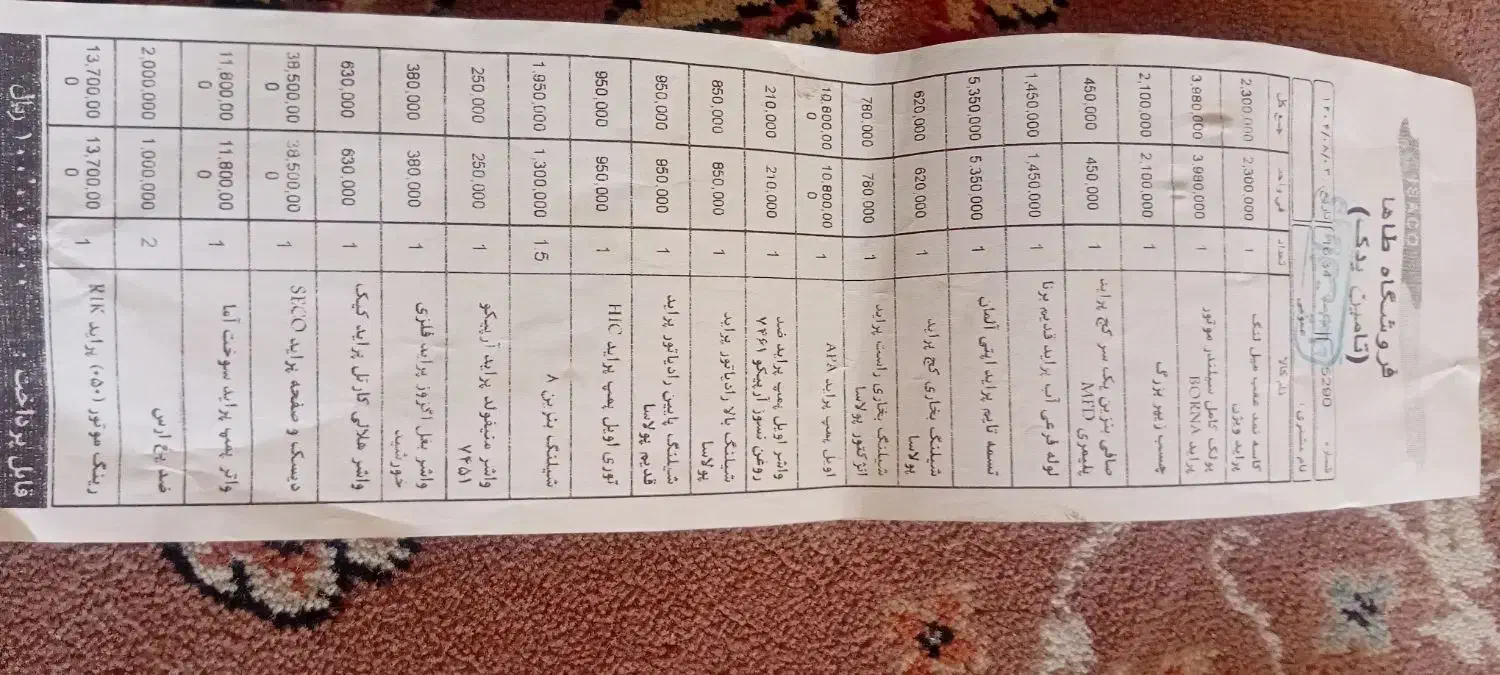 ISACO
فروشگاه طاها
(تامین یدک)
شماره 5290 تاریخ: ۱۴۰۴/۸/۰۳
نام مشتری: عمومی
نام کالا تعداد فی واحد جمع کل
کاسه نمد عقب میل لنگ پراید ویژن 1 2,300,000 2,300,000
پولک کامل سیلندر موتور پراید BORNA 1 3,980,000 3,980,000
چسب زیپر بزرگ 1 2,100,000 2,100,000
صافی بنزین یک سر کج پراید پلیمری MFD 1 450,000 450,000
لوله فرعی آب پراید قدیم برنا 1 1,450,000 1,450,000
تسمه تایم پراید اپتی آلمان 1 5,350,000 5,350,000
شیلنگ بخاری کج پراید پولاسا 1 620,000 620,000
شیلنگ بخاری راست پراید انژکتور پولاسا 1 780,000 780,000
اویل پمپ پراید APA 1 10,800,000 10,800,000
واشر اویل پمپ پراید ضد روغن نسوز آرپیکو ۷۴۶۱ 1 210,000 210,000
شیلنگ بالا رادیاتور پراید پولاسا 1 850,000 850,000
شیلنگ پایین رادیاتور پراید قدیم پولاسا 1 950,000 950,000
توری اویل پمپ پراید HIC 1 950,000 950,000
شیلنگ بنزین ۸ 1.5 1,300,000 1,950,000
واشر منیفولد پراید آرپیکو ۷۴۵۱ 1 250,000 250,000
واشر بغل اگزوز پراید فلزی خورشید 1 380,000 380,000
واشر هلالی کارتل پراید کیک 1 630,000 630,000
دیسک و صفحه پراید SECO 1 38,500,000 38,500,000
واتر پمپ پراید سوخت آما 1 11,800,000 11,800,000
ضد یخ ارس 2 1,000,000 2,000,000
رینگ موتور (۰۵۰) پراید RIK 1 13,700,000 13,700,000
قابل پرداخت: ریال